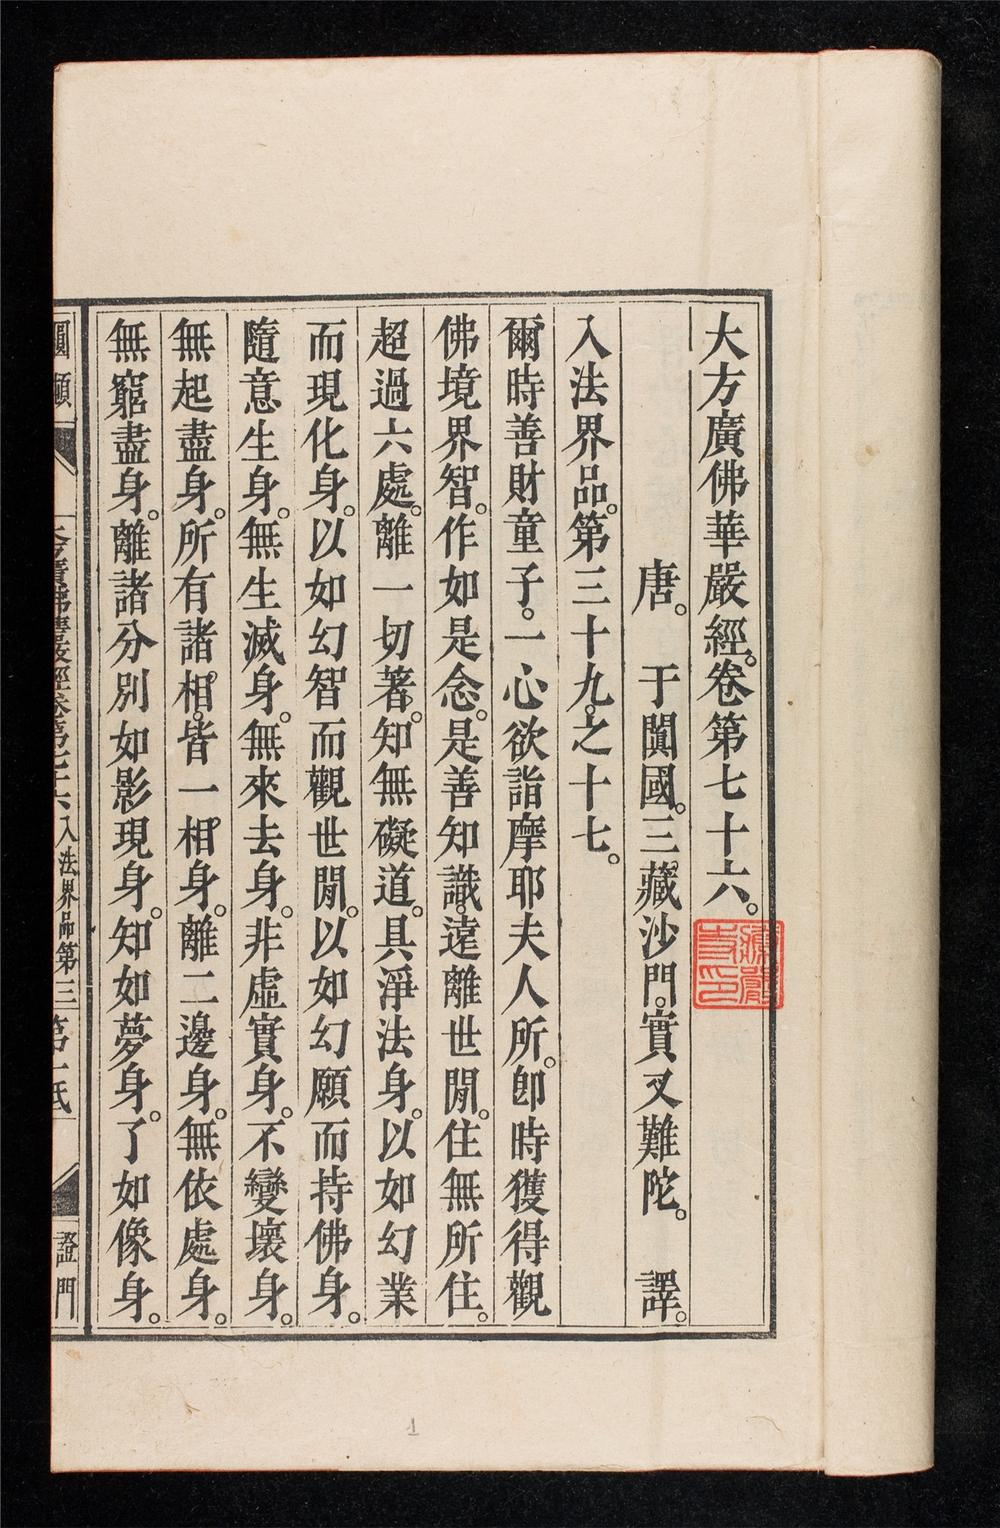 大方廣佛華嚴經。卷第七十六。
唐。于闐國。三藏沙門。實叉難陀。譯。
入法界品。第三十九。之十七。
爾時善財童子。一心欲詣摩耶夫人所。卽時獲得觀
佛境界智。作如是念。是善知識。遠離世閒。住無所住。
超過六處。離一切著。知無礙道。具淨法身。以如幻業
而現化身。以如幻智而觀世閒。以如幻願而持佛身。
隨意生身。無生滅身。無來去身。非虛實身。不變壞身。
無起盡身。所有諸相。皆一相身。離二邊身。無依處身。
無窮盡身。離諸分別如影現身。知如夢身。了如像身。
佛華嚴經卷第七十六 入法界品第三 第一紙
證門
1